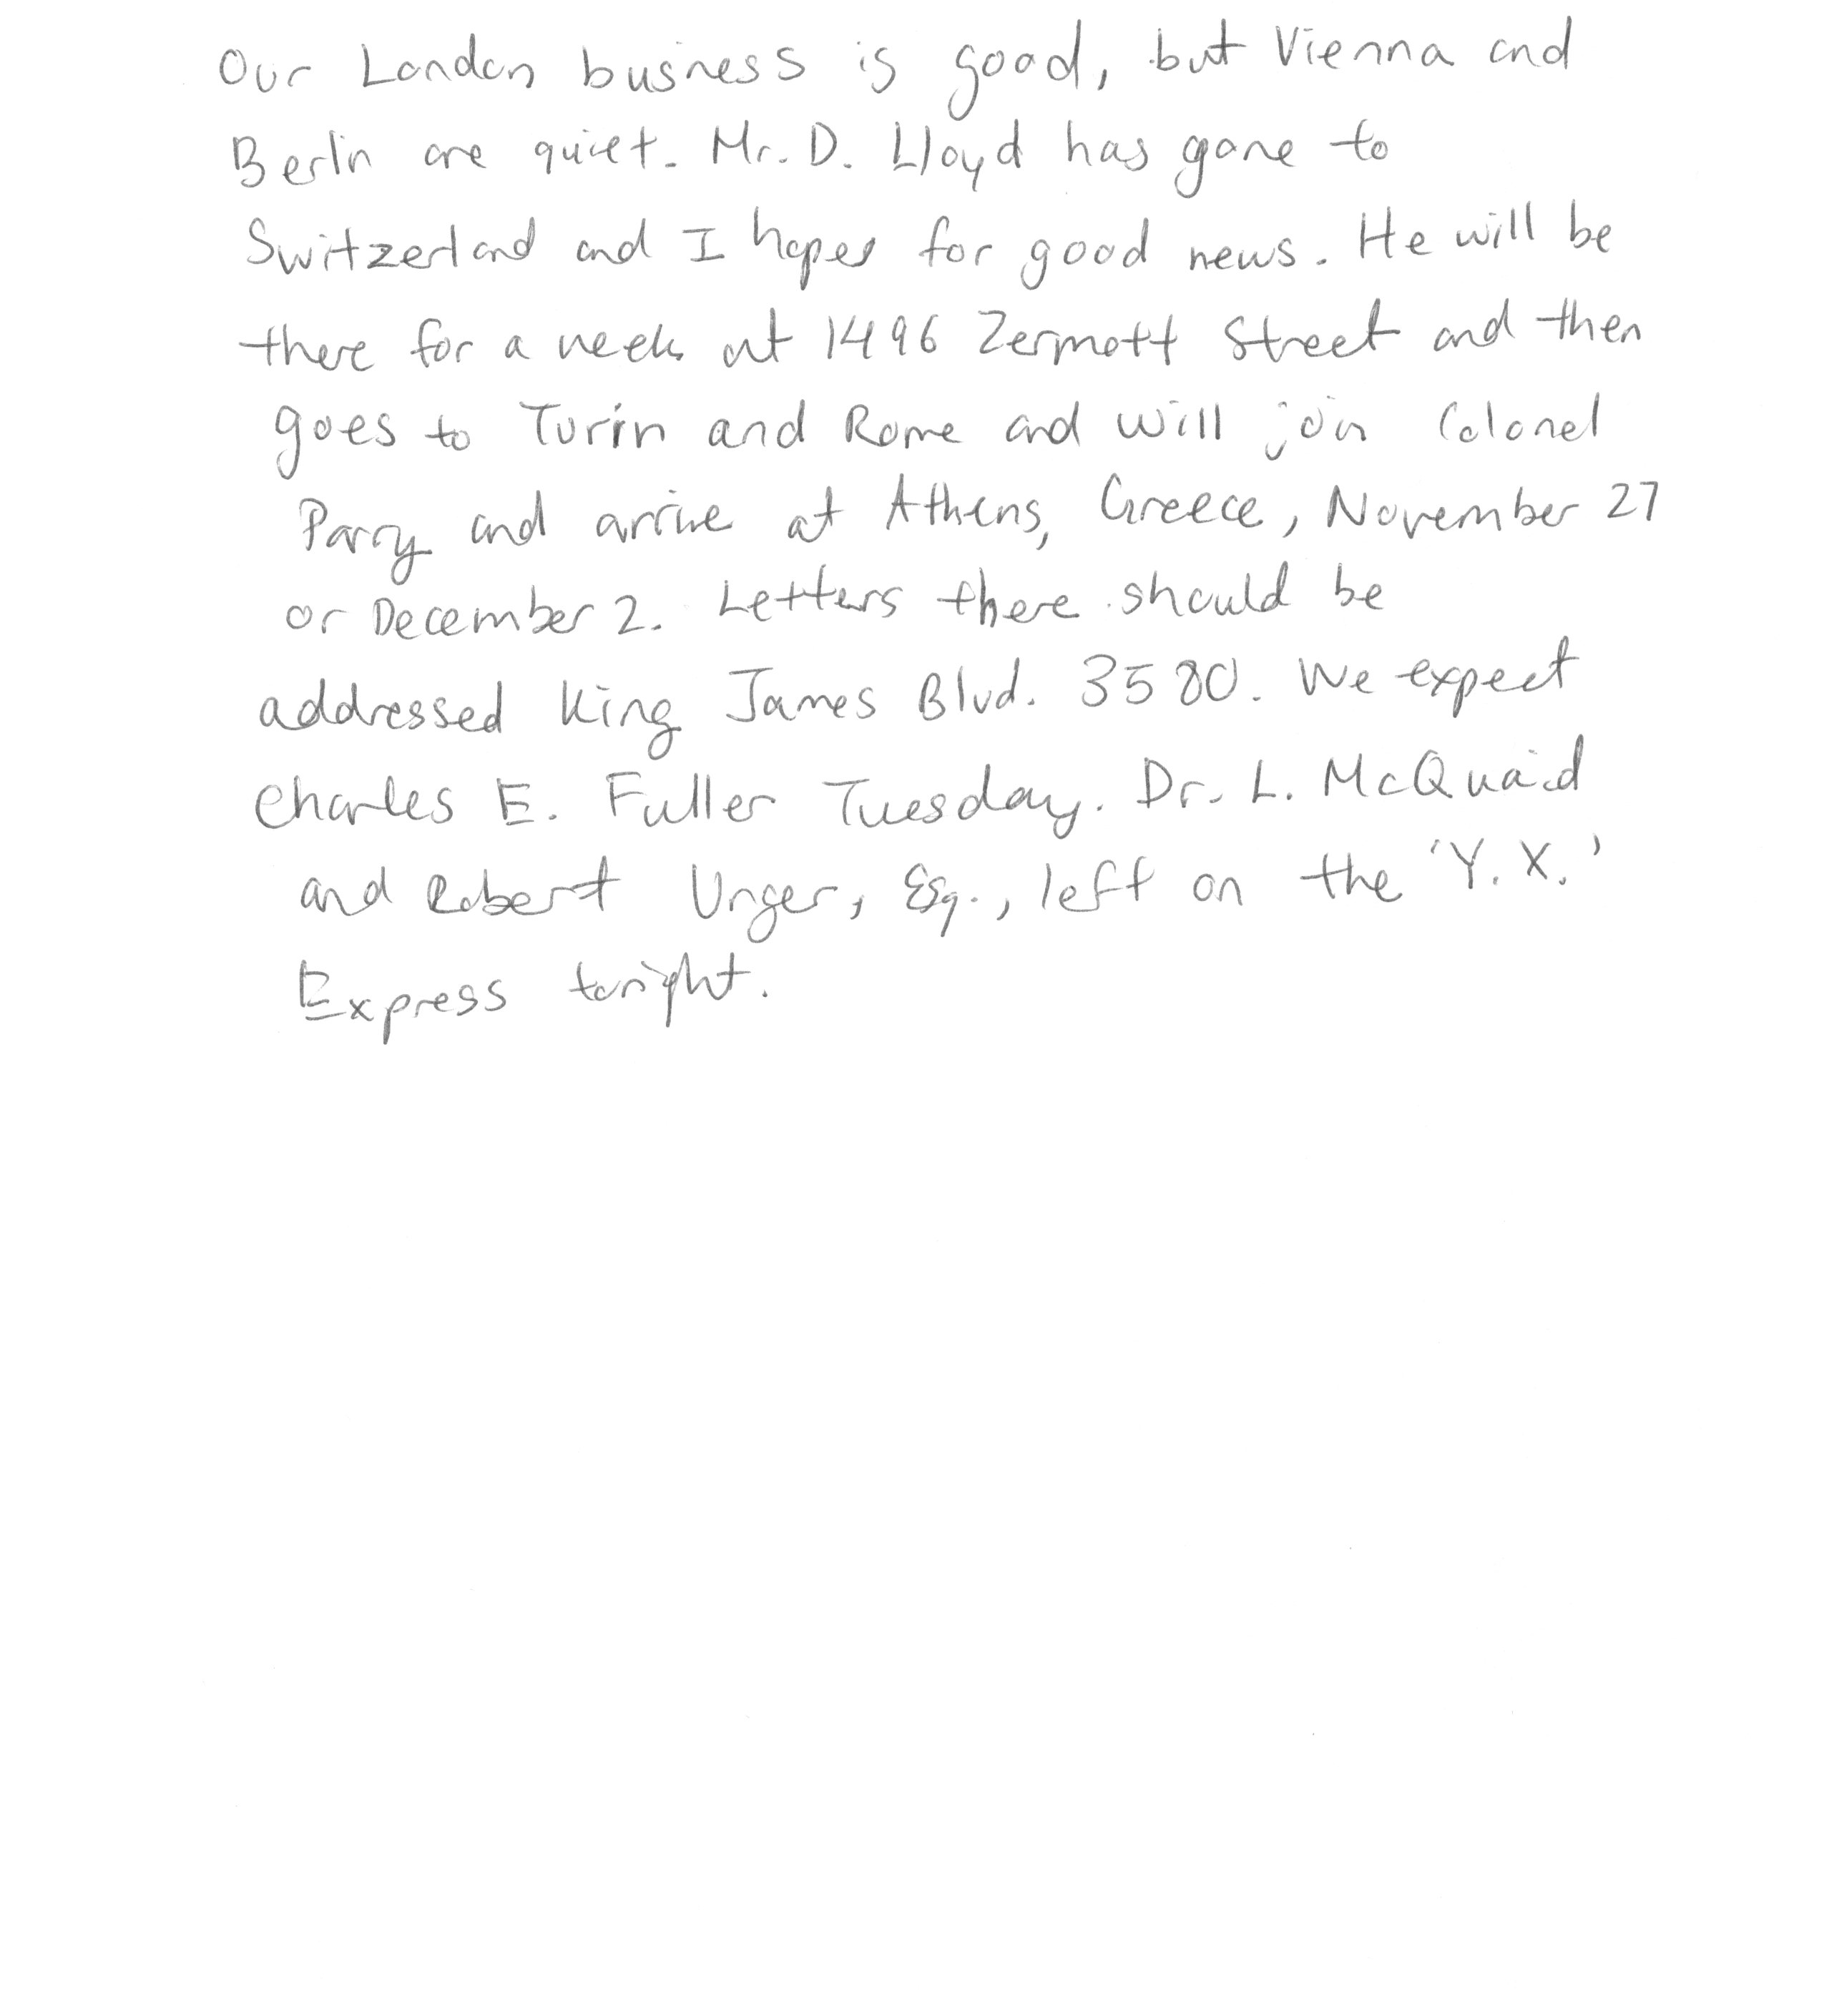 Our London business is good, but Vienna and
Berlin are quiet. Mr. D. Lloyd has gone to
Switzerland and I hopes for good news. He will be
there for a week at 1496 Zermott Street and then
goes to Turin and Rome and will join Colonel
Parry and arrive at Athens, Greece, November 27
or December 2. Letters there should be
addressed King James Blvd. 3580. We expect
Charles E. Fuller Tuesday. Dr. L. McQuaid
and Robert Unger, Esq., left on the 'Y.X.'
Express tonight.